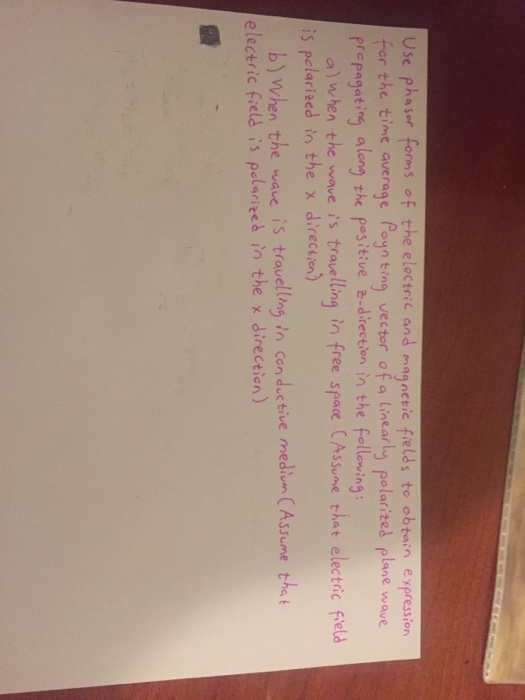 Use phasor forms of the electric and magnetic fields to obtain expression
for the time average Poynting vector of a linearly polarized plane wave
propagating along the positive z-direction in the following:
a) When the wave is travelling in free space (Assume that electric field
is polarized in the x direction)
b) When the wave is travelling in conductive medium (Assume that
electric field is polarized in the x direction)